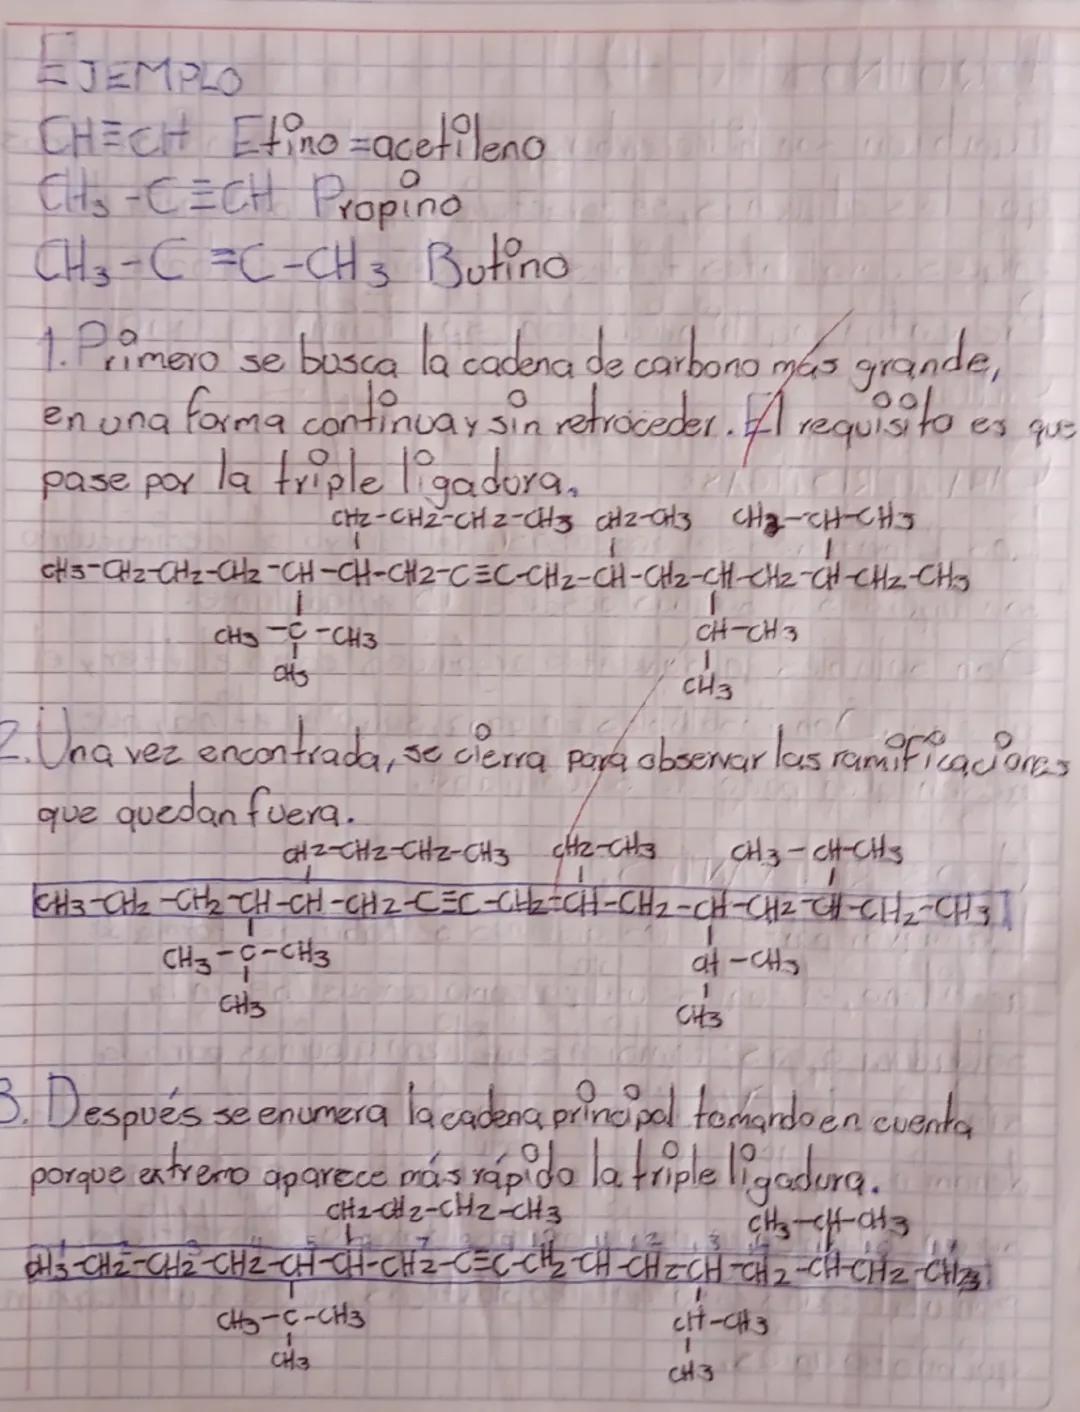 EJEMPLO
CH≡CH Etino =acetileno
CH3-C≡CH Propino
CH3-C≡C-CH3 Butino
1. Primero se busca la cadena de carbono más grande,
en una forma continua y sin retroceder. El requisito es que
pase por la triple ligadura.
CH2-CH2-CH2-CH3 CH2-CH3 CH3-CH-CH3
CH3-CH2-CH2-CH2-CH-CH-CH2-C≡C-CH2-CH-CH2-CH-CH2-CH-CH2-CH3
CH3-C-CH3 CH-CH3
CH3 CH3
2. Una vez encontrada, se cierra para observar las ramificaciones
que quedan fuera.
CH2-CH2-CH2-CH3 CH2-CH3 CH3-CH-CH3
CH3-CH2-CH2-CH-CH-CH2-C≡C-CH2-CH-CH2-CH-CH2-CH-CH2-CH3
CH3-C-CH3 CH-CH3
CH3 CH3
3. Después se enumera la cadena principal tomando en cuenta
porque extremo aparece más rápido la triple ligadura.
CH2-CH2-CH2-CH3 CH3-CH-CH3
CH3-CH2-CH2-CH2-CH-CH-CH2-C≡C-CH2-CH-CH2-CH-CH2-CH-CH2-CH3
CH3-C-CH3 CH-CH3
CH3 CH3